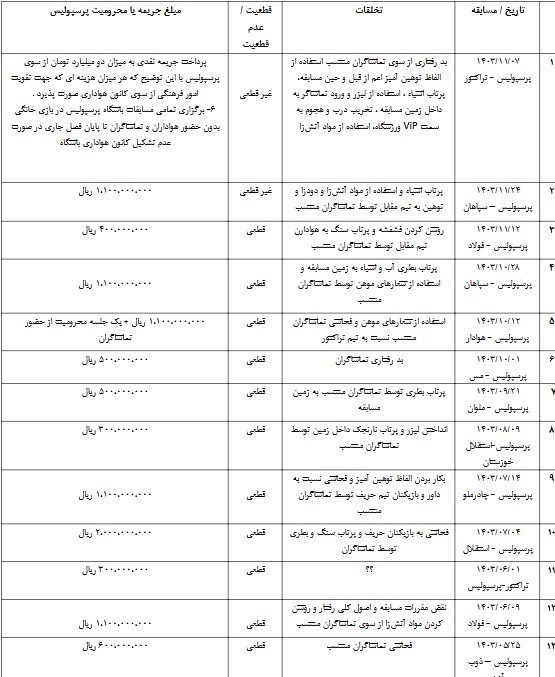 تاریخ / مسابقه
تخلفات
قطعیت /
عدم
قطعیت
مبلغ جریمه یا محرومیت پرسپولیس
۱
۱۴۰۳/۱۱/۰۷
پرسپولیس - تراکتور
بد رفتاری از سوی تماشاگران منتسب استفاده از
الفاظ توهین آمیز اعم از قبل و حین مسابقه،
پرتاب اشیاء ، استفاده از لیزر و ورود تماشاگر به
داخل زمین مسابقه ، تخریب درب و هجوم به
سمت ViP ورزشگاه، استفاده از مواد آتش‌زا
غیر قطعی
پرداخت جریمه نقدی به میزان دو میلیارد تومان از سوی
پرسپولیس با این توضیح که هر میزان هزینه ای که جهت تقویت
امور فرهنگی از سوی کانون هواداری صورت پذیرد .
۶- برگزاری تمامی مسابقات باشگاه پرسپولیس در بازی خانگی
بدون حضور هواداران و تماشاگران تا پایان فصل جاری در صورت
عدم تشکیل کانون هواداری باشگاه
۲
۱۴۰۳/۱۱/۲۴
پرسپولیس – سپاهان
پرتاب اشیاء و استفاده از مواد آتش‌زا و دودزا و
توهین به تیم مقابل توسط تماشاگران منتسب
غیر قطعی
۱،۱۰۰،۰۰۰،۰۰۰ ریال
۳
۱۴۰۳/۱۱/۱۲
پرسپولیس - فولاد
روشن کردن فشفشه و پرتاب سنگ به هوادارن
تیم مقابل توسط تماشاگران منتسب
قطعی
۴۰۰،۰۰۰،۰۰۰ ریال
۴
۱۴۰۳/۱۰/۲۸
پرسپولیس - سپاهان
پرتاب بطری آب و اشیاء به زمین مسابقه و
استفاده از شعارهای موهن توسط تماشاگران
منتسب
قطعی
۱،۱۰۰،۰۰۰،۰۰۰ ریال
۵
۱۴۰۳/۱۰/۱۲
پرسپولیس - هوادار
استفاده از شعارهای موهن و فحاشی تماشاگران
منتسب نسبت به تیم تراکتور
قطعی
۱،۱۰۰،۰۰۰،۰۰۰ ریال + یک جلسه محرومیت از حضور
تماشاگران
۶
۱۴۰۳/۱۰/۰۱
پرسپولیس - مس
بد رفتاری تماشاگران
قطعی
۵۰۰،۰۰۰،۰۰۰ ریال
۷
۱۴۰۳/۰۹/۲۱
پرسپولیس - ملوان
پرتاب بطری توسط تماشاگران منتسب به زمین
مسابقه
قطعی
۵۰۰،۰۰۰،۰۰۰ ریال
۸
۱۴۰۳/۰۸/۰۹
پرسپولیس-استقلال
خوزستان
انداختن لیزر و پرتاب نارنجک داخل زمین توسط
تماشاگران منتسب
قطعی
۳۰۰،۰۰۰،۰۰۰ ریال
۹
۱۴۰۳/۰۷/۱۴
پرسپولیس - چادرملو
بکار بردن الفاظ توهین آمیز و فحاشی نسبت به
داور و بازیکنان تیم حریف توسط تماشاگران
منتسب
قطعی
۱،۱۰۰،۰۰۰،۰۰۰ ریال
۱۰
۱۴۰۳/۰۷/۰۴
پرسپولیس - استقلال
فحاشی به بازیکنان حریف و پرتاب سنگ و بطری
توسط تماشاگران
قطعی
۲،۰۰۰،۰۰۰،۰۰۰ ریال
۱۱
۱۴۰۳/۰۶/۰۱
تراکتور-پرسپولیس
؟؟
قطعی
۳۰۰،۰۰۰،۰۰۰ ریال
۱۲
۱۴۰۳/۰۶/۰۹
پرسپولیس - فولاد
نقض مقررات مسابقه و اصول کلی رفتار و روشن
کردن مواد آتش‌زا از سوی تماشاگران منتسب
قطعی
۱،۱۰۰،۰۰۰،۰۰۰ ریال
۱۳
۱۴۰۳/۰۵/۲۵
پرسپولیس – ذوب
فحاشی تماشاگران منتسب
قطعی
۶۰۰،۰۰۰،۰۰۰ ریال